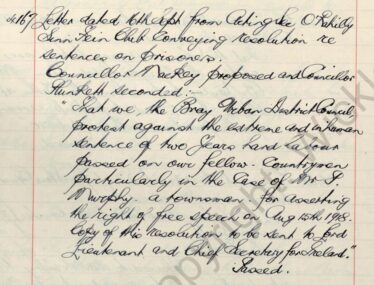 167 Letter dated 16th Sept from Acting Sec O'Rahilly
Sinn Fein Club Conveying resolution re
sentences on prisoners.
Councillor MacKey proposed and Councillor
Plunkett seconded:-
"That we, the Bray Urban District Council,
protest against the extreme and inhuman
sentence of two Years hard labour
passed on our fellow-Countrymen
particularly in the Case of Mr J.
Murphy. a townsman for asserting
the right of free speech on Aug 15th 1918.
Copy of this resolution to be sent to Lord
Lieutenant and Chief Secretary for Ireland."
Passed.